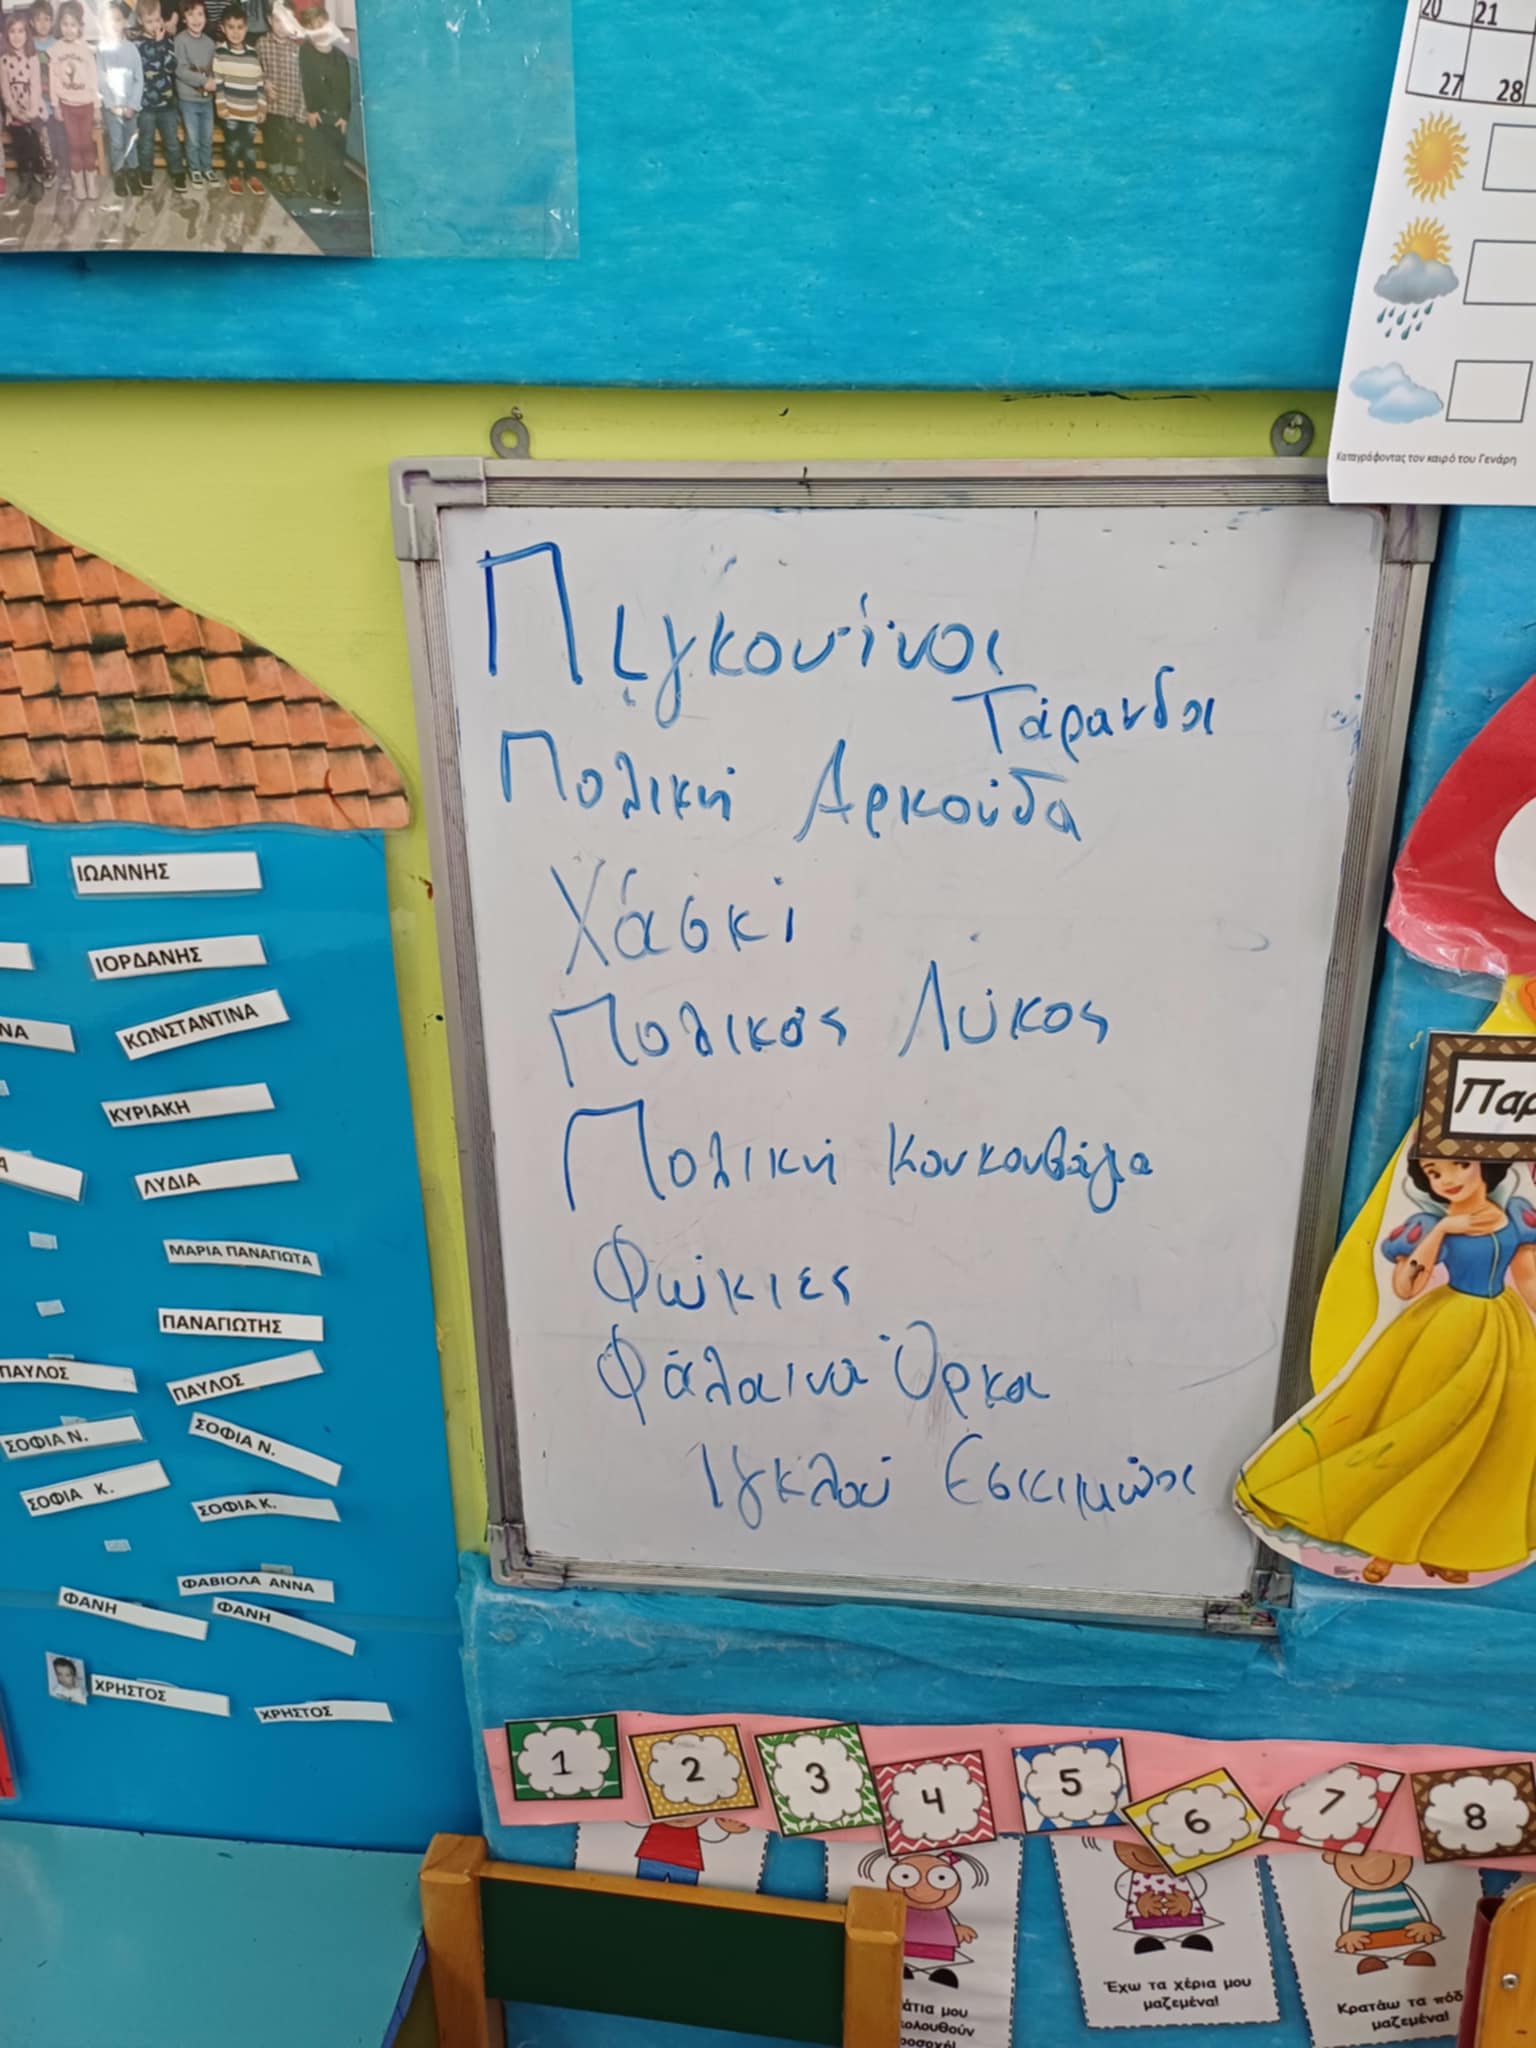 20 21
27 28
Καταγράφοντας τον καιρό του Γενάρη
Πιγκουίνοι
Τάρανδοι
Πολική Αρκούδα
Χάσκι
Πολικός Λύκος
Πολική Κουκουβάγια
Φώκιες
Φάλαινα Όρκα
Ιγκλού Εσκιμώοι
ΙΩΑΝΝΗΣ
ΙΟΡΔΑΝΗΣ
ΝΑ ΚΩΝΣΤΑΝΤΙΝΑ
ΚΥΡΙΑΚΗ
Α ΛΥΔΙΑ
ΜΑΡΙΑ ΠΑΝΑΓΙΩΤΑ
ΠΑΝΑΓΙΩΤΗΣ
ΠΑΥΛΟΣ ΠΑΥΛΟΣ
ΣΟΦΙΑ Ν. ΣΟΦΙΑ Ν.
ΣΟΦΙΑ Κ. ΣΟΦΙΑ Κ.
ΦΑΒΙΟΛΑ ΑΝΝΑ
ΦΑΝΗ ΦΑΝΗ
ΧΡΗΣΤΟΣ ΧΡΗΣΤΟΣ
Παρ
1 2 3 4 5 6 7 8
άτια μου
κολουθούν
ροσοχή!
Έχω τα χέρια μου
μαζεμένα!
Κρατάω τα πόδ
μαζεμένα!